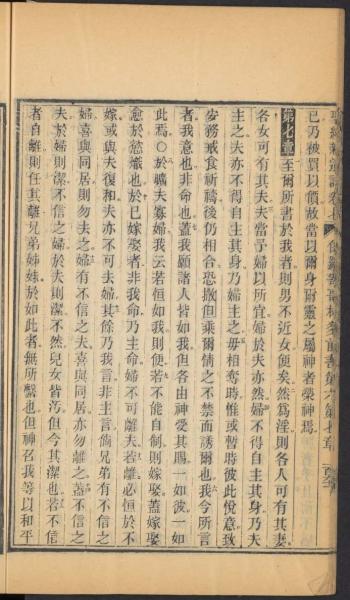 己乃被買以價故當以爾身爾靈之屬神者榮神焉
第七章 至爾所書於我者則男不近女便矣然爲淫則各人可有其妻
各女可有其夫夫當予婦以所宜婦於夫亦然婦不得自主其身乃夫
主之夫亦不得自主其身乃婦主之毋相奪時惟或暫時彼此悅意致
安務戒食祈禱後仍相合恐撒但乘爾情之不禁而誘爾也我今所言
者我意也非命也蓋我願諸人皆如我但各由神受其賜一如彼一如
此焉○於曠夫寡婦我云若恒如我則便若不能自制則嫁娶蓋嫁娶
愈於慾熾也於已嫁娶者非我命乃主命婦不可離夫若離必恒於不
嫁或與夫復和夫亦不可去婦其餘乃我言非主言倘兄弟有不信之
婦喜與同居則勿去之婦有不信之夫喜與同居亦勿離之蓋不信之
夫於婦則潔不信之婦於夫則潔不然兒女皆汚但今其潔也若不信
者自離則任其離兄弟姊妹於如此者無所繫也但神召我等以和平